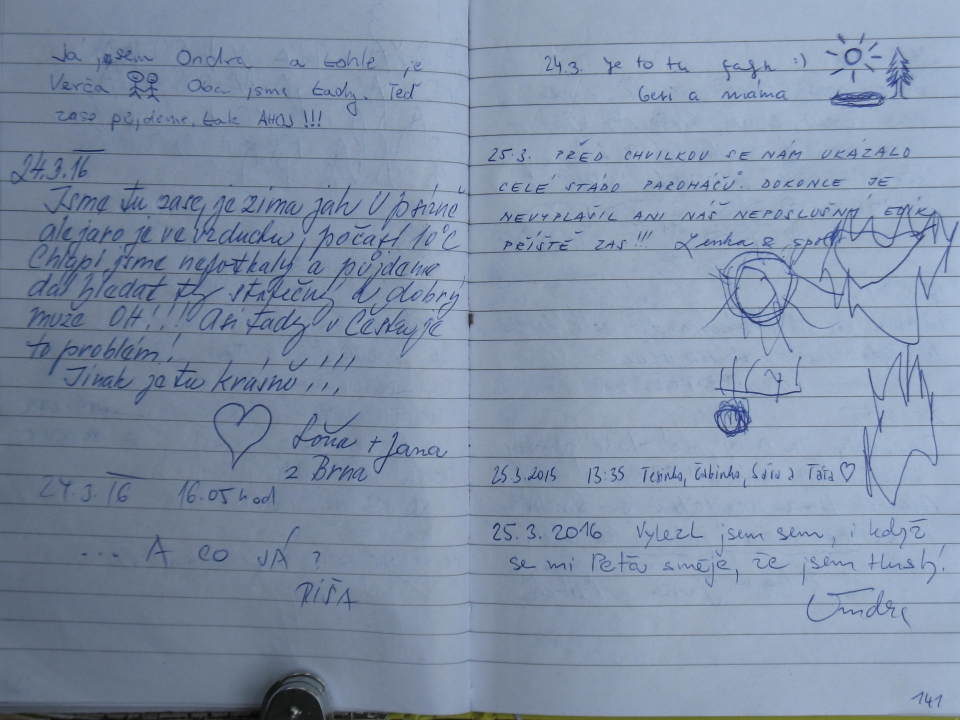 Já jsem Ondra a tohle je
Verča Oba jsme tady. Teď
zase půjdeme, tak AHOJ!!!
24.3.16
Jsme tu zase, je zima jak v
ale jaro je ve vzduchu, počasí 10°C
Chlapi jsme nepotkaly a půjdeme
dál hledat ty statečný a dobrý
muže OH!!! Asi tady v Česku je
to problém!
Jinak je tu krásně !!!
+ Jana
z Brna
24.3.16 16.05 hod
... A CO JÁ?
PÍŠA
24.3. Je to tu fajn :)
a máma
25.3. PŘED CHVILKOU SE NÁM UKÁZALO
CELÉ STÁDO PAROHÁČŮ. DOKONCE JE
NEVYPLAŠIL ANI NÁŠ NEPOSLUŠNÝ
PŘÍŠTĚ ZAS!!! Lenka & spol.
25.3.2015 13:35 Terinka, Sára a Táta ♡
25.3.2016 Vylezl jsem sem, i když
se mi Péťa směje, že jsem tlustý!
Ondra
141